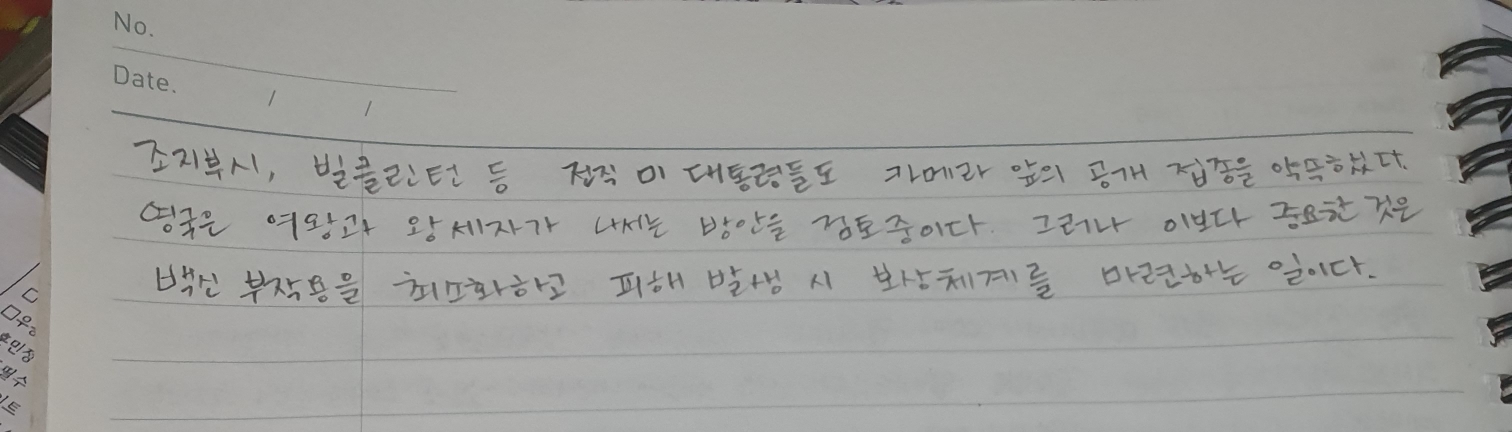 No.
Date. / /
조지부시, 빌클린턴 등 전직 미 대통령들도 카메라 앞의 공개 접종을 약속하였다.
영국은 여왕과 왕세자가 나서는 방안을 검토중이다. 그러나 이보다 중요한 것은
백신 부작용을 최소화하고 피해 발생 시 보상체계를 마련하는 일이다.
필수